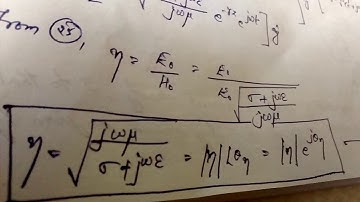 e^{-γz} e^{jωt} ] ŷ
from (25),
η = E₀/H₀ = E₀/(E₀ √((σ + jωε)/(jωμ)))
η = √(jωμ/(σ + jωε)) = |η| ∠θη = |η| e^{jθη}